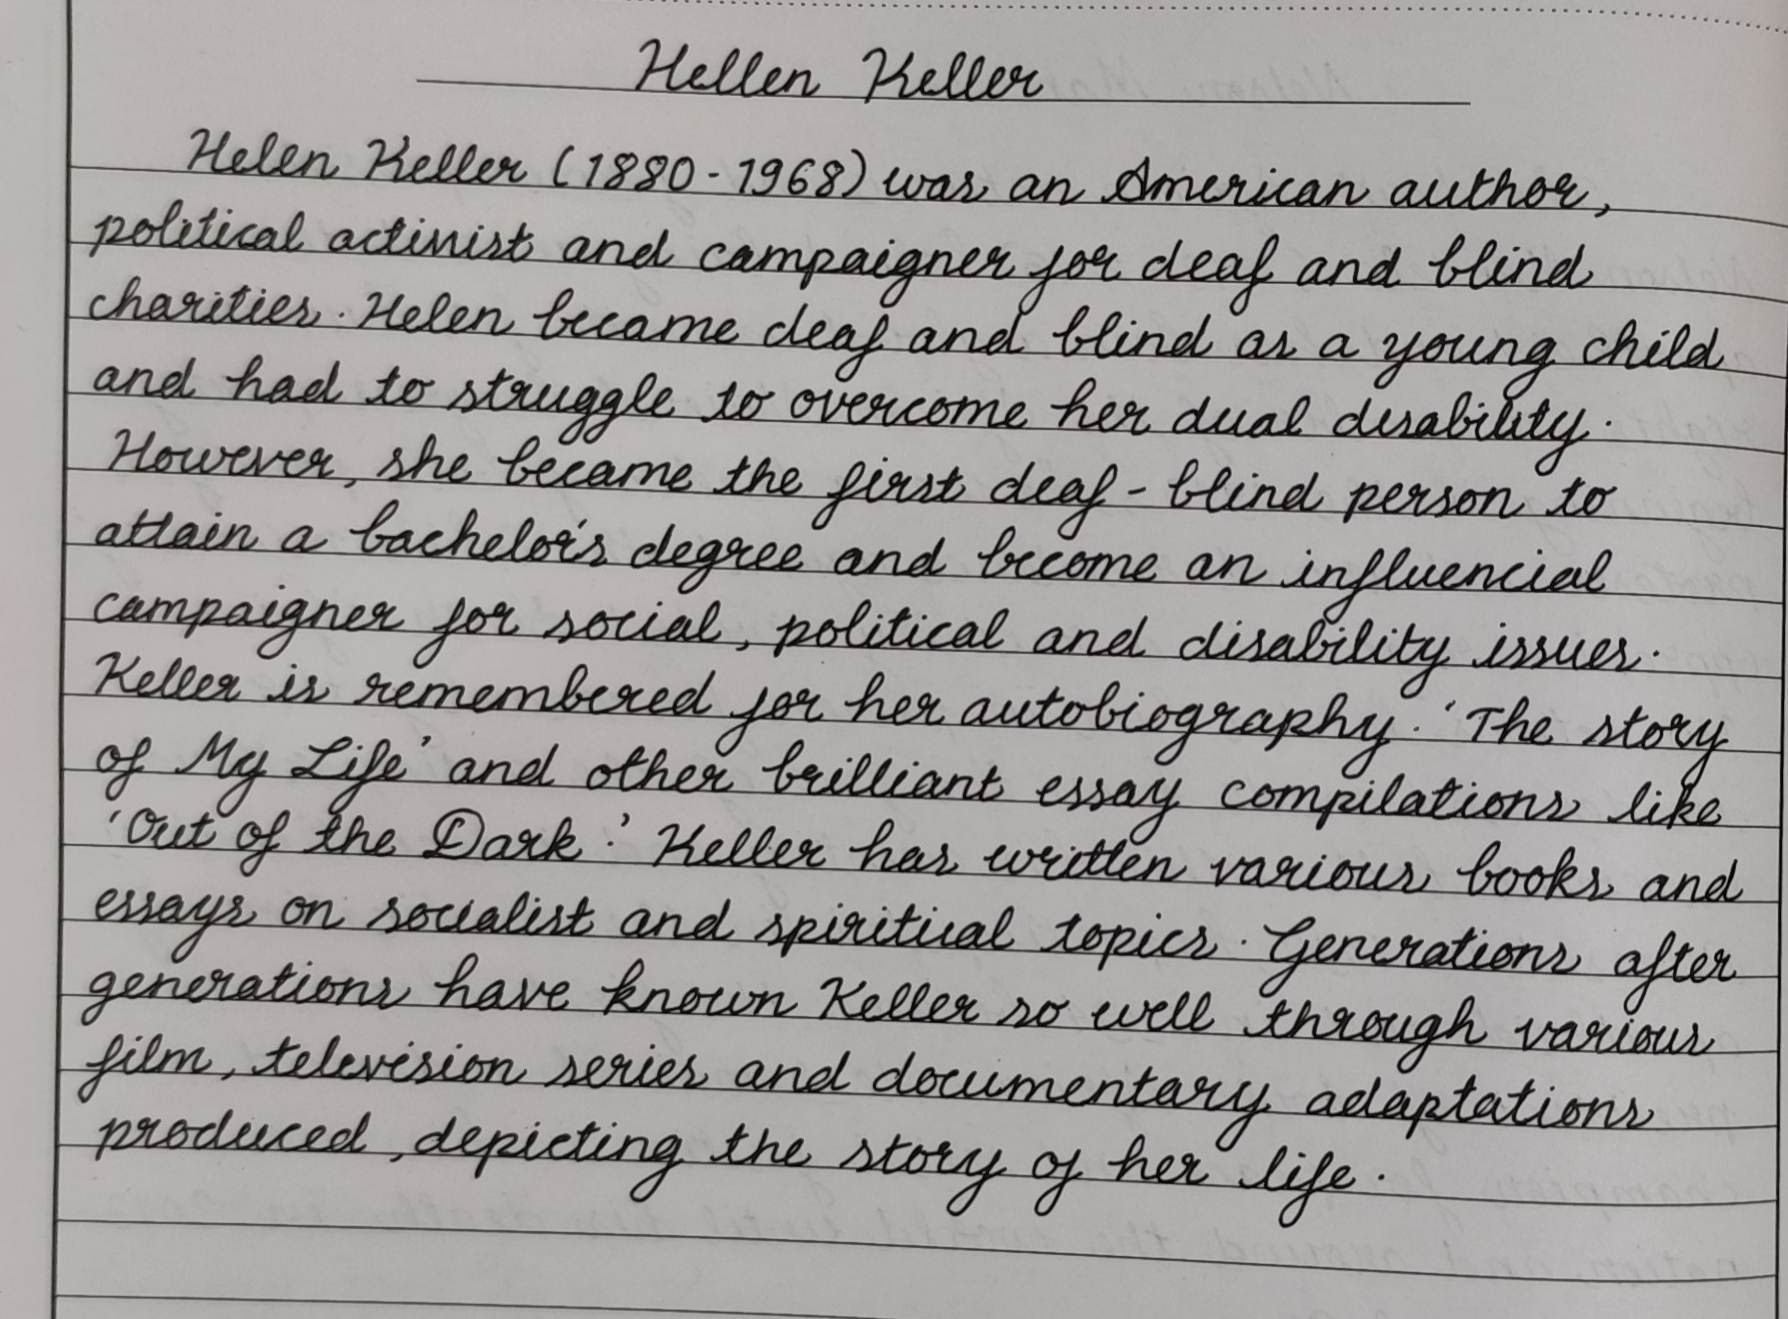 Hellen Keller
Helen Keller (1880-1968) was an American author,
political activist and campaigner for deaf and blind
charities. Helen became deaf and blind as a young child
and had to struggle to overcome her dual disability.
However, she became the first deaf-blind person to
attain a bachelor's degree and become an influencial
campaigner for social, political and disability issues.
Keller is remembered for her autobiography. 'The story
of My Life' and other brilliant essay compilations like
'Out of the Dark.' Keller has written various books and
essays on socialist and spiritiual topics. Generations after
generations have known Keller so well through various
film, television series and documentary adaptations
produced, depicting the story of her life.